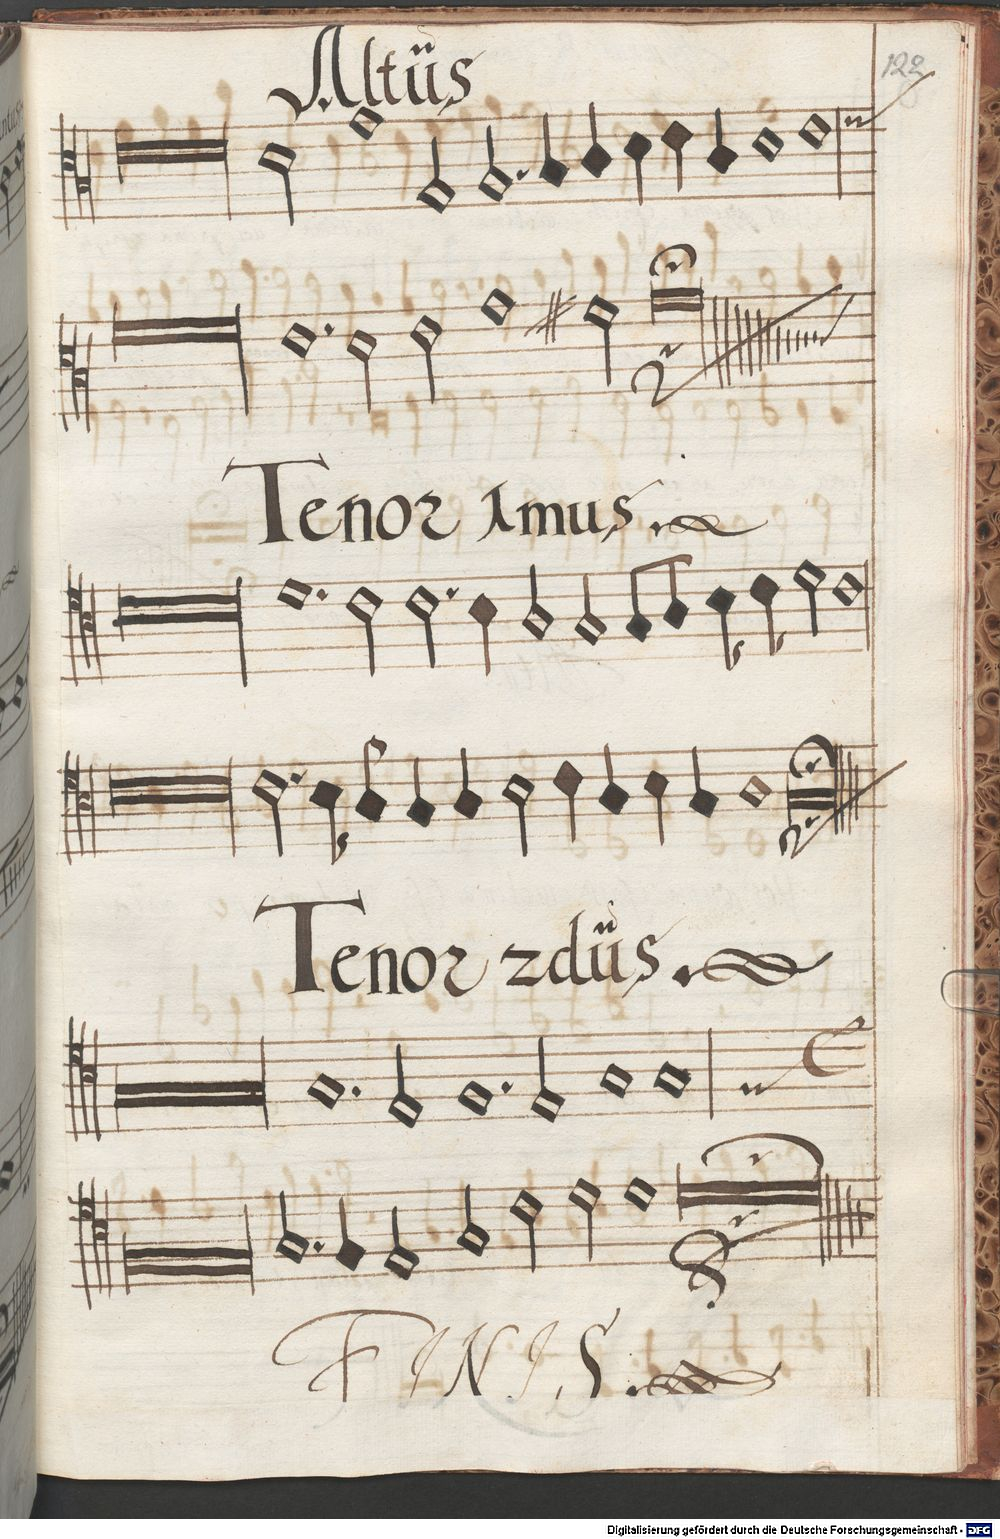 122
Altüs
Tenor 1mus.
Tenor 2düs.
FINIS.
Digitalisierung gefördert durch die Deutsche Forschungsgemeinschaft - DFG